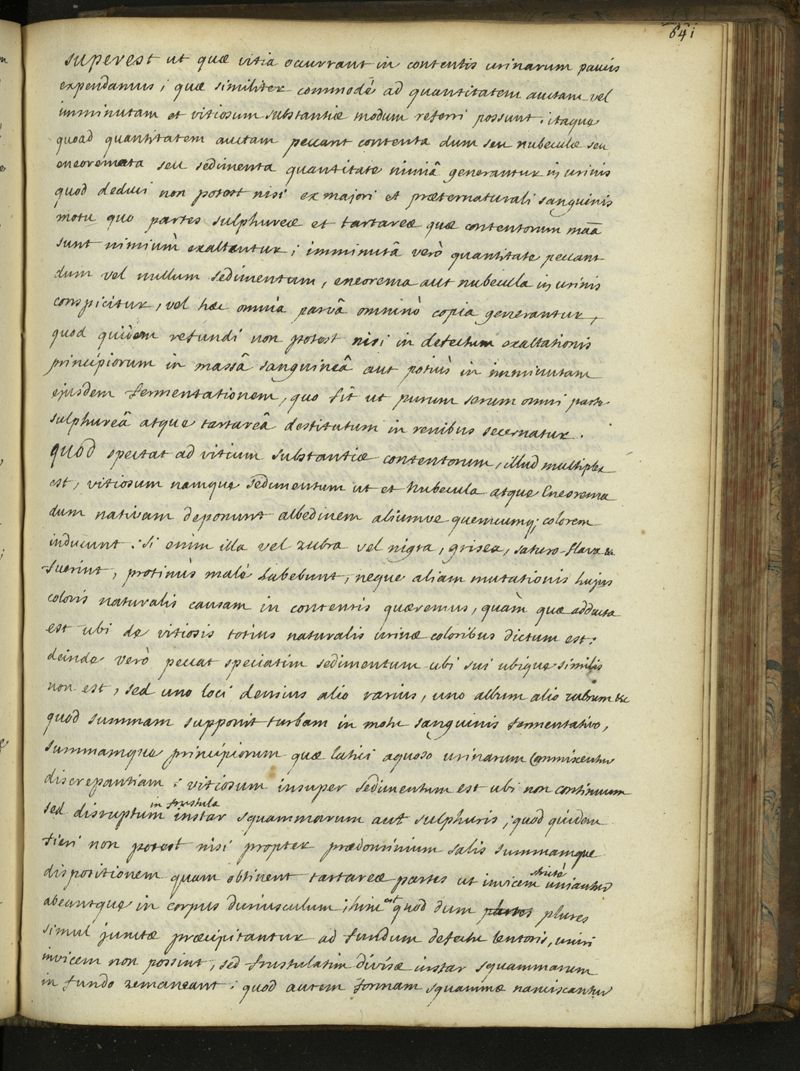 641
superest ut quæ vitia occurrant in contentis urinarum paucis
expendamus ; quæ similiter commodè ad quantitatem auctam vel
imminutam et vitiosum substantiæ modum referri possunt . itaque
quoad quantitatem auctam peccant contenta dum seu nubeculæ seu
eneoremata seu sedimenta quantitate nimiâ generantur in urinis
quod deduci non potest nisi ex majori et præternaturali sanguinis
motu quo partes sulphureæ et tartareæ quæ contentorum māā
sunt nimiùm exaltantur ; imminutâ verò quantitate peccant
dum vel nullum sedimentum , eneorema aut nubecula in urinis
conspicitur , vel hæc omnia parvâ omninò copia generantur ,
quod quidem refundi non potest nisi in defectum exaltationis
principiorum in massâ sanguineâ aut potiùs in imminutam
ejusdem fermentationem , quo fit ut purum serum omni parte
sulphureâ atque tartareâ destitutum in renibus secernatur .
quod spectat ad vitium substantiæ contentorum , illud multiplex
est , vitiosum namque sedimentum ut et Nubecula atque Eneorema
dum nativam deponunt albedinem aliumve quemcumq; colorem
inducunt : si enim illa vel rubra vel nigra , grisea , saturo-flava &c
fuerint , protinùs malè habebunt , neque aliam mutationis hujus
coloris naturalis causam in contentis quæremus , quàm quæ adducta
est ubi de vitiosis totius naturalis urinæ coloribus dictum est :
deinde verò peccat speciatim sedimentum ubi sui ubique similis
non est , sed uno loci densius alio rarius , uno album alio rubrum &c
quod summam supponit turbam in motu sanguinis fermentativo ,
summamque principiorum quæ latici aquoso urinarum commixentur
discrepantiam : vitiosum insuper sedimentum est ubi non continuum
sed disruptum in frustula instar squammarum aut sulphuris , quod quidem
fieri non potest nisi propter prædominium salis summamque
dispositionem quam obtinent tartareæ partes ut invicem strictè uniantur
abeantque in corpus duriusculum ; hinc est quod dum plures
simul junctæ præcipitantur ad fundum defectu lentoris , uniri
invicem non possint , sed frustulatim divisæ instar squammarum
in fundo remaneant : quod autem formam squammæ nanciscantur